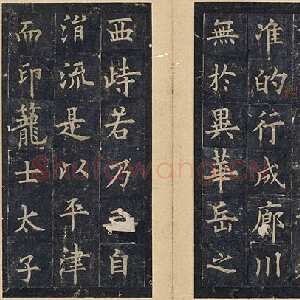 准的行成廊川
無於異華岳之
西峙若乃自
涓流是以平津
而印蘢士太子